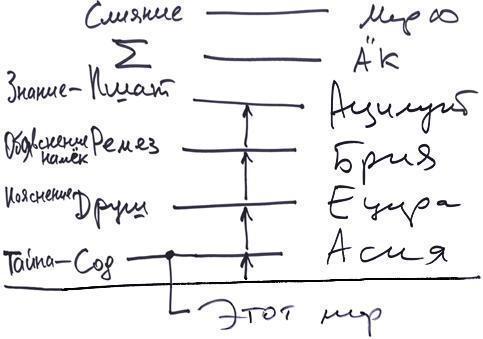 Слияние Мир ∞
Σ АК
Знание - Пшат Ацилут
Объяснение намёк Ремез Брия
Пояснение Друш Ецира
Тайна - Сод Асия
Этот мир